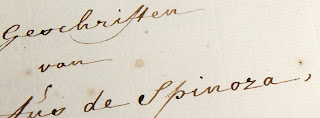 Geschriften
van
tus de Spinoza,